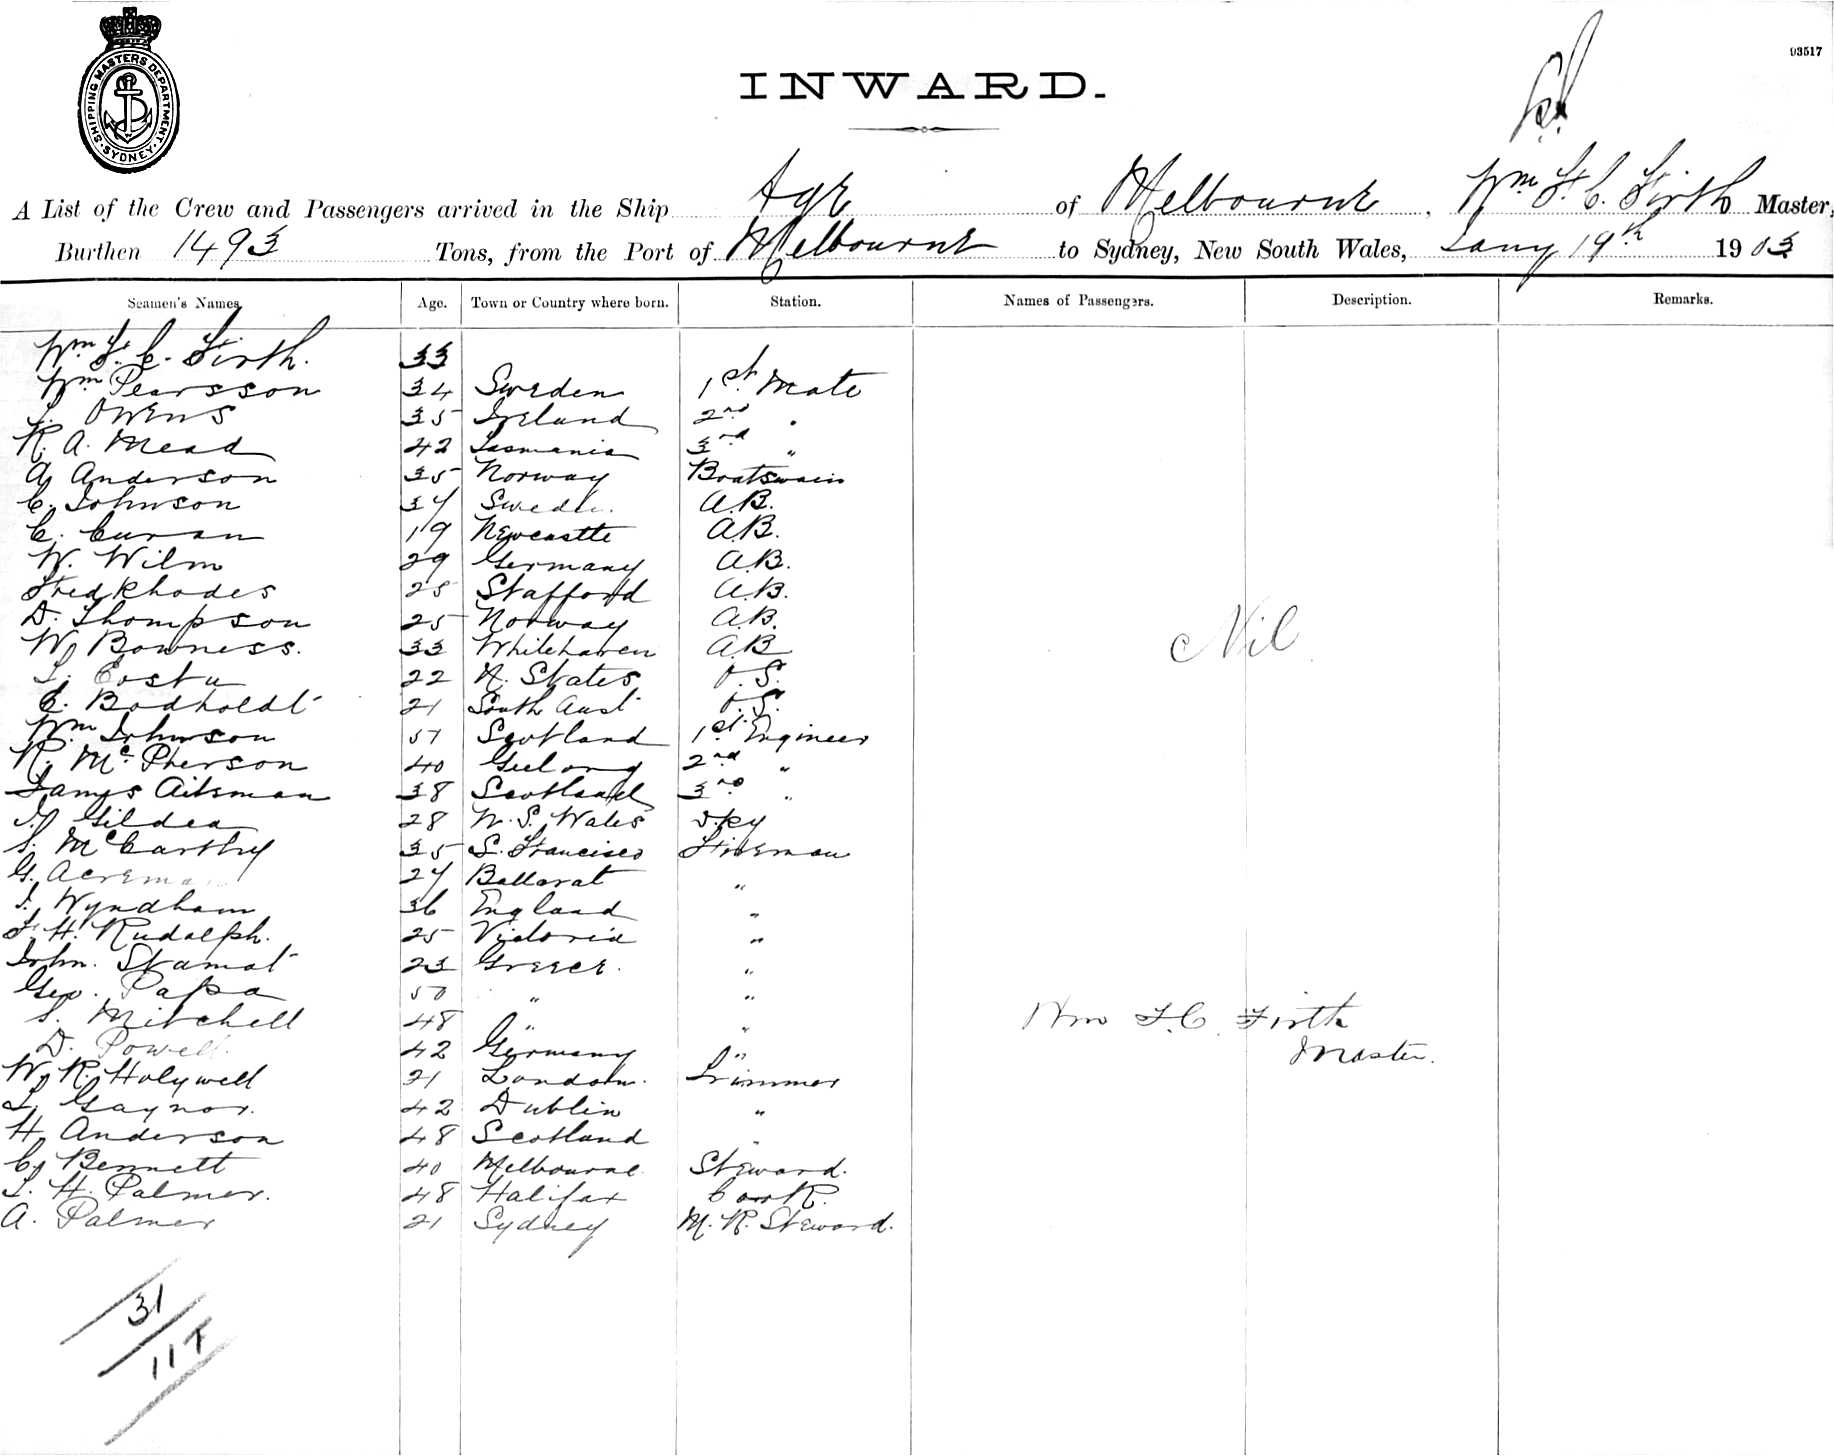 SHIPPING MASTERS DEPARTMENT
SYDNEY
93517
INWARD.
A List of the Crew and Passengers arrived in the Ship Age of Melbourne, Wm F. C. Firth Master,
Burthen 1493 Tons, from the Port of Melbourne to Sydney, New South Wales, Jany 19th 1903
Seamen's Names. Age. Town or Country where born. Station. Names of Passengers. Description. Remarks.
Wm F. C. Firth. 33
Wm Pearsson 34 Sweden 1st Mate
Owens 35 Ireland 2nd "
R. A. Mead 42 Tasmania 3rd "
A. Anderson 35 Norway Boatswain
C. Johnson 34 Sweden A.B.
C. Curan 19 Newcastle A.B.
W. Wilm 29 Germany A.B.
Fred Rhodes 25 Stafford A.B.
D. Thompson 25 Norway A.B.
W. Bowness. 33 Whitehaven A.B
Nil
22 States O.S.
C. Bodholdt 21 South Aust O.S.
Wm Johnson 51 Scotland 1st Engineer
R. McPherson 40 Geelong 2nd "
James Aitkman 38 Scotland 3rd "
Gildea 28 N. S. Wales Dky
S. McCarthy 35 S. Francisco Fireman
G. Acrema 24 Ballarat "
J. Wyndham 36 England "
F. H. Rudolph. 25 Victoria "
John. Stamat 23 Greece. "
Geo. Papa 50 " "
S. Mitchell 48 " "
Wm F. C. Firth
D. Powell 42 Germany "
Master.
W. R. Holywell 21 London. Trimmer
Gaynor. 42 Dublin "
H. Anderson 48 Scotland "
C. Bennett 40 Melbourne Steward.
H. Palmer. 48 Halifax Cook.
A. Palmer 21 Sydney M. R. Steward.
31
117